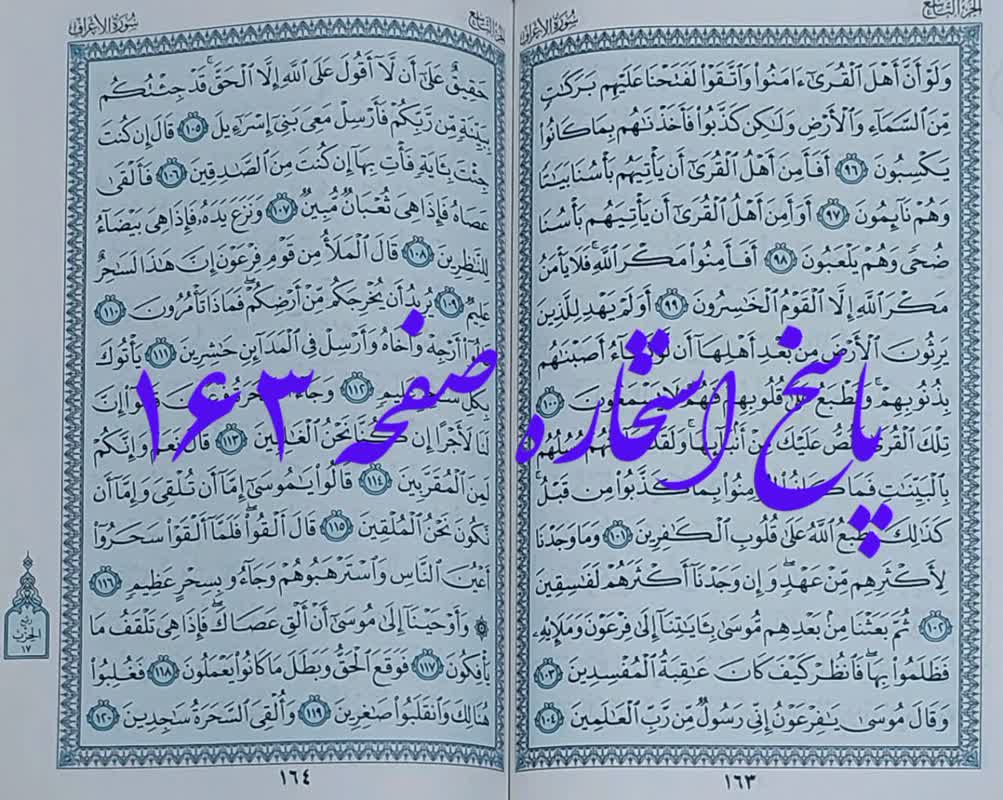 الجزء التاسع
سورة الأعراف
وَلَوْ أَنَّ أَهْلَ الْقُرَىٰٓ ءَامَنُوا۟ وَاتَّقَوْا۟ لَفَتَحْنَا عَلَيْهِم بَرَكَٰتٍ
مِّنَ السَّمَآءِ وَالْأَرْضِ وَلَٰكِن كَذَّبُوا۟ فَأَخَذْنَٰهُم بِمَا كَانُوا۟
يَكْسِبُونَ ٩٦ أَفَأَمِنَ أَهْلُ الْقُرَىٰٓ أَن يَأْتِيَهُم بَأْسُنَا بَيَٰتًا
وَهُمْ نَآئِمُونَ ٩٧ أَوَأَمِنَ أَهْلُ الْقُرَىٰٓ أَن يَأْتِيَهُم بَأْسُنَا
ضُحًى وَهُمْ يَلْعَبُونَ ٩٨ أَفَأَمِنُوا۟ مَكْرَ اللَّهِ ۚ فَلَا يَأْمَنُ
مَكْرَ اللَّهِ إِلَّا الْقَوْمُ الْخَٰسِرُونَ ٩٩ أَوَلَمْ يَهْدِ لِلَّذِينَ
يَرِثُونَ الْأَرْضَ مِنۢ بَعْدِ أَهْلِهَآ أَن لَّوْ نَشَآءُ أَصَبْنَٰهُم
بِذُنُوبِهِمْ ۚ وَنَطْبَعُ عَلَىٰ قُلُوبِهِمْ فَهُمْ لَا يَسْمَعُونَ ١٠٠
تِلْكَ الْقُرَىٰ نَقُصُّ عَلَيْكَ مِنْ أَنۢبَآئِهَا ۚ وَلَقَدْ جَآءَتْهُمْ رُسُلُهُم
بِالْبَيِّنَٰتِ فَمَا كَانُوا۟ لِيُؤْمِنُوا۟ بِمَا كَذَّبُوا۟ مِن قَبْلُ ۚ
كَذَٰلِكَ يَطْبَعُ اللَّهُ عَلَىٰ قُلُوبِ الْكَٰفِرِينَ ١٠١ وَمَا وَجَدْنَا
لِأَكْثَرِهِم مِّنْ عَهْدٍ ۖ وَإِن وَجَدْنَآ أَكْثَرَهُمْ لَفَٰسِقِينَ
١٠٢ ثُمَّ بَعَثْنَا مِنۢ بَعْدِهِم مُّوسَىٰ بِـَٔايَٰتِنَآ إِلَىٰ فِرْعَوْنَ وَمَلَإِي۟هِ
فَظَلَمُوا۟ بِهَا ۖ فَانظُرْ كَيْفَ كَانَ عَٰقِبَةُ الْمُفْسِدِينَ ١٠٣
وَقَالَ مُوسَىٰ يَٰفِرْعَوْنُ إِنِّى رَسُولٌ مِّن رَّبِّ الْعَٰلَمِينَ ١٠٤
١٦٣
الجزء التاسع
سورة الأعراف
حَقِيقٌ عَلَىٰٓ أَن لَّآ أَقُولَ عَلَى اللَّهِ إِلَّا الْحَقَّ ۚ قَدْ جِئْتُكُم
بِبَيِّنَةٍ مِّن رَّبِّكُمْ فَأَرْسِلْ مَعِىَ بَنِىٓ إِسْرَٰٓءِيلَ ١٠٥ قَالَ إِن كُنتَ
جِئْتَ بِـَٔايَةٍ فَأْتِ بِهَآ إِن كُنتَ مِنَ الصَّٰدِقِينَ ١٠٦ فَأَلْقَىٰ
عَصَاهُ فَإِذَا هِىَ ثُعْبَانٌ مُّبِينٌ ١٠٧ وَنَزَعَ يَدَهُۥ فَإِذَا هِىَ بَيْضَآءُ
لِلنَّٰظِرِينَ ١٠٨ قَالَ الْمَلَأُ مِن قَوْمِ فِرْعَوْنَ إِنَّ هَٰذَا لَسَٰحِرٌ
عَلِيمٌ ١٠٩ يُرِيدُ أَن يُخْرِجَكُم مِّنْ أَرْضِكُمْ ۖ فَمَاذَا تَأْمُرُونَ ١١٠
قَالُوٓا۟ أَرْجِهْ وَأَخَاهُ وَأَرْسِلْ فِى الْمَدَآئِنِ حَٰشِرِينَ ١١١ يَأْتُوكَ
بِكُلِّ سَٰحِرٍ عَلِيمٍ ١١٢ وَجَآءَ السَّحَرَةُ فِرْعَوْنَ قَالُوٓا۟ إِنَّ
لَنَا لَأَجْرًا إِن كُنَّا نَحْنُ الْغَٰلِبِينَ ١١٣ قَالَ نَعَمْ وَإِنَّكُمْ
لَمِنَ الْمُقَرَّبِينَ ١١٤ قَالُوا۟ يَٰمُوسَىٰٓ إِمَّآ أَن تُلْقِىَ وَإِمَّآ أَن
نَّكُونَ نَحْنُ الْمُلْقِينَ ١١٥ قَالَ أَلْقُوا۟ ۖ فَلَمَّآ أَلْقَوْا۟ سَحَرُوٓا۟
أَعْيُنَ النَّاسِ وَاسْتَرْهَبُوهُمْ وَجَآءُو بِسِحْرٍ عَظِيمٍ ١١٦
۞ وَأَوْحَيْنَآ إِلَىٰ مُوسَىٰٓ أَنْ أَلْقِ عَصَاكَ ۖ فَإِذَا هِىَ تَلْقَفُ مَا
يَأْفِكُونَ ١١٧ فَوَقَعَ الْحَقُّ وَبَطَلَ مَا كَانُوا۟ يَعْمَلُونَ ١١٨ فَغُلِبُوا۟
هُنَالِكَ وَانقَلَبُوا۟ صَٰغِرِينَ ١١٩ وَأُلْقِىَ السَّحَرَةُ سَٰجِدِينَ ١٢٠
ربع
الحزب
١٧
١٦٤
پاسخ استخاره صفحه ۱۶۳